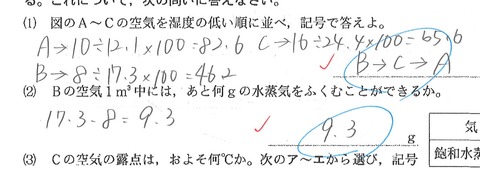 る。これについて、次の問いに答えなさい。
(1) 図のA〜Cの空気を湿度の低い順に並べ、記号で答えよ。
A→10÷12.1×100=82.6 C→16÷24.4×100=65.6
B→8÷17.3×100=46.2
B→C→A
(2) Bの空気1m³中には、あと何gの水蒸気をふくむことができるか。
17.3-8=9.3
9.3 g
気
飽和水蒸
(3) Cの空気の露点は、およそ何℃か。次のア〜エから選び、記号